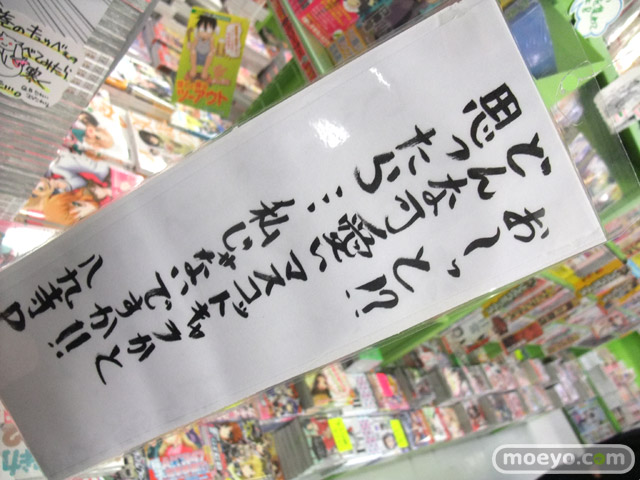 お〜っと!?
どんな可愛いマスコットキャラかと
思ったら…私じゃないですか!!
八九寺P
moeyo.com